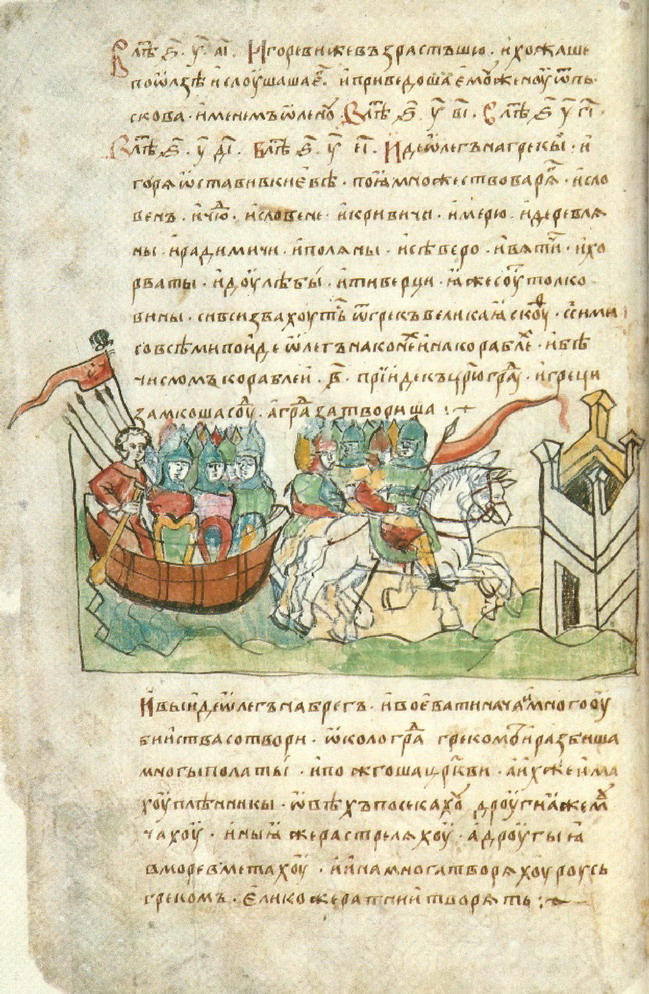 В лѣⷮ ҂ѕ҃. у҃. аі҃. Игоревижевъзрастъшю. ихожаше
поѡлзѣ ислоушаша еⷢ. ипр҃иведоша емⷹженоу ѿпь
скова. именемъѡленоу В лѣⷮ ҂ѕ҃. у҃ ві҃. В лѣⷮ ҂ѕ҃ у҃ гі҃.
В лѣⷮ ҂ѕ҃. у҃ ді҃. В лѣⷮ ҂ѕ҃. у҃ еі҃. Идеѡлегънагрекы. и
горяѡставивкиевѣ. поꙗмножествоваряⷢ. исло
венъ. ичюⷣ. исловене. икривичи. имерю. идеревля
ны. ирадимичи. иполяны. исѣверо. ивятиⷱ. ихо
рваты. идоулѣбы. итиверци. ꙗжесоуⷮтолко
вины. сивсизвахоутьⷭ ѿгрекъвеликаꙗскоуⷴ. ссими
совсѣмипоидеѡлегънаконеⷯинакорабле. ивѣ
числомъкораблеи. ҂в҃. прїидекъцр҃юграⷣу. игреци
замкошасоуⷣ. аграⷣзатвориша :
Ивыидеѡлегънабрегъ. ивоеватинача. имногооу
бииствасотвори. ѡколограⷣа грекомъ. иразбиша
многыполаты. ипожгошацр҃кви. аихжеима
хоуплѣнникы. ѡвѣхъпосекахоу дроугиаꙗжемⷹ
чахоу. иныꙗжерастреляхоу. адроугыꙗ
вморевметахоу. иинамноготворяхоуроусь
грекомъ. еликожератниитворять :